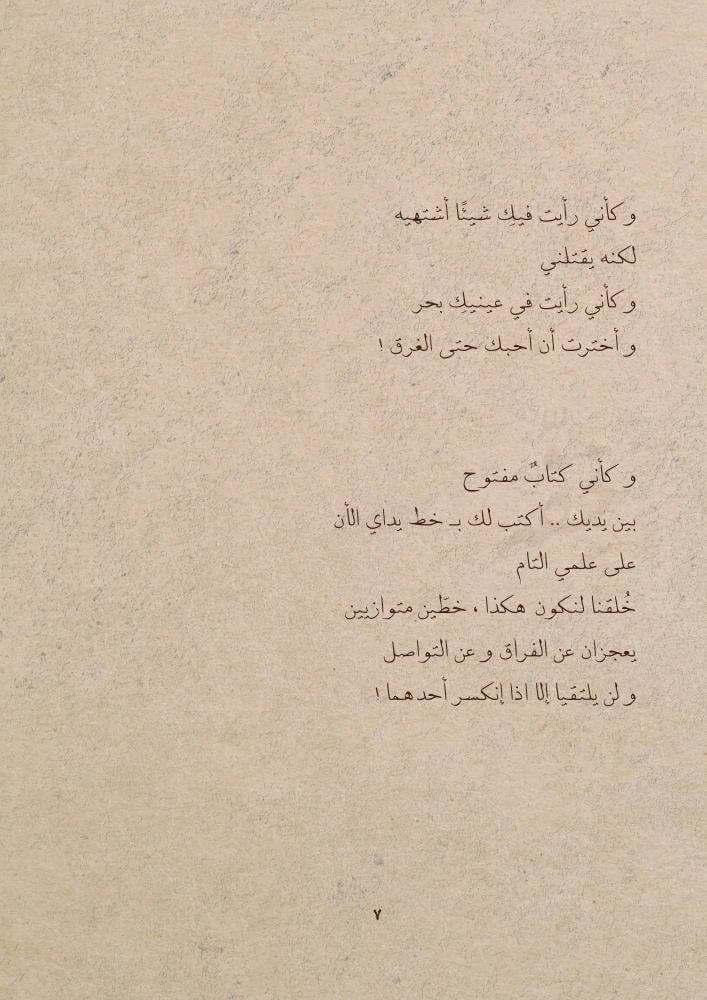 و كأني رأيت فيكِ شيئًا أشتهيه
لكنه يقتلني
و كأني رأيت في عينيكِ بحر
و أخترت أن أحبك حتى الغرق !
و كأني كتابٌ مفتوح
بين يديك .. أكتب لك بـ خط يداي الأن
على علمي التام
خُلقنا لنكون هكذا ، خطَين متوازيين
يعجزان عن الفراق و عن التواصل
و لن يلتقيا إلا اذا إنكسر أحدهما !
٧